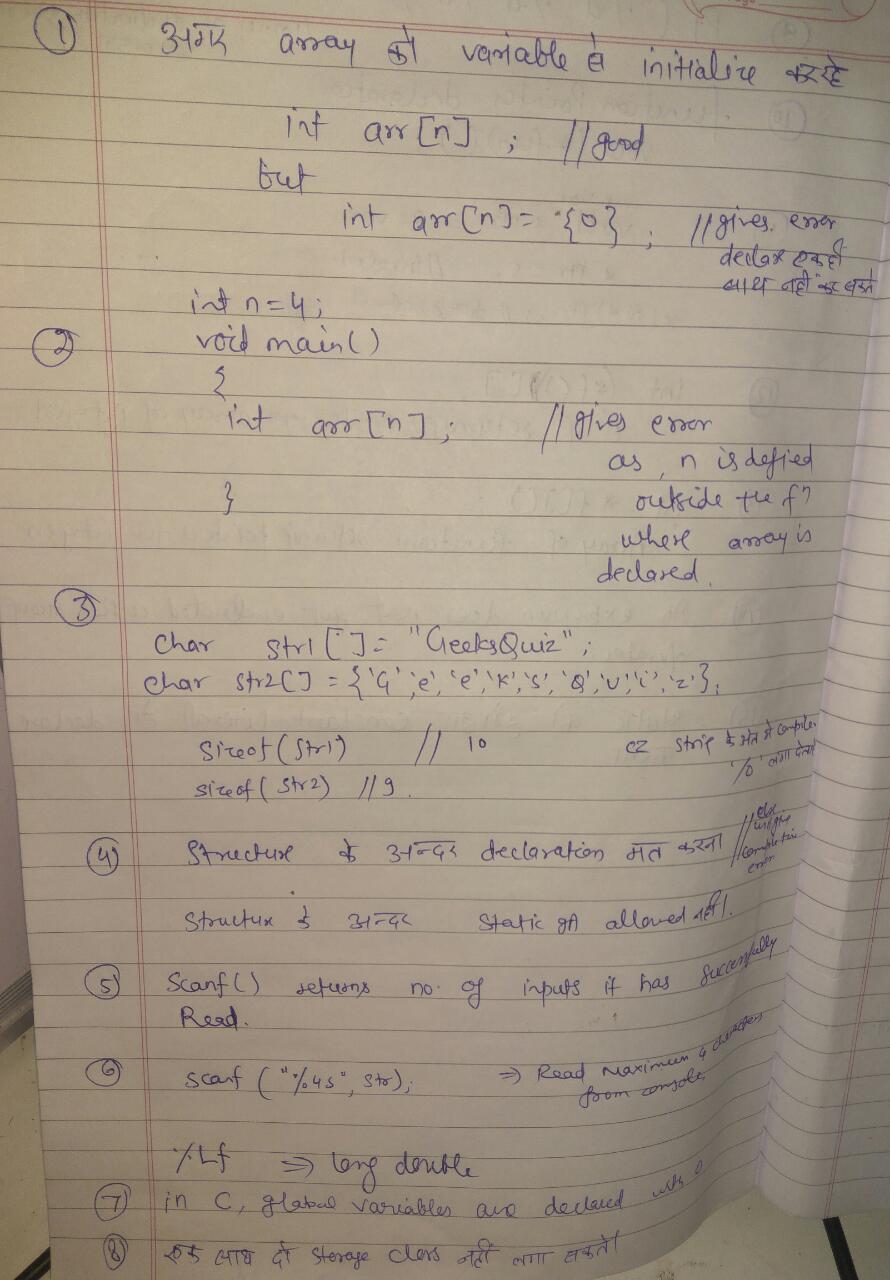 ① अगर array को variable से initialize कर रहे
int arr[n] ; //good
but
int arr[n]= {0} ; //gives error
declare एक ही
साथ नहीं कर सकते
int n=4;
② void main()
{
int arr[n]; //gives error
as, n is defied
} outside the fn
where array is
declared.
③
char str1[]= "GeeksQuiz";
char str2[] = {'G','e','e','k','s','Q','u','i','z'};
sizeof(str1) // 10 cz string के अंत में compiler
'\0' लगा देता
sizeof(str2) //9.
④ Structure के अन्दर declaration मत करना //else
will give
compile time
error
Structure के अन्दर static भी allowed नहीं।
⑤ Scanf() returns no. of inputs it has successfully
Read.
⑥ scanf ("%4s", str); ⇒ Read maximum 4 characters
from console
%Lf ⇒ long double
⑦ in C, global variables are declared with 0
⑧ एक साथ दो storage class नहीं लगा सकते।